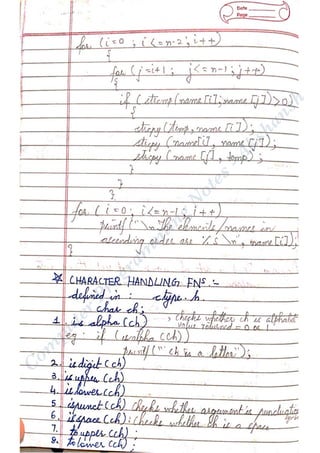 Date
Page
for (i=0 ; i<=n-2 ; i++)
{
for (j=i+1 ; j<=n-1 ; j++)
{
if (strcmp(name[i], name[j])>0)
{
strcpy (temp, name[i]);
strcpy (name[i], name[j]);
strcpy (name[j], temp);
}
}
}
for (i=0 ; i<=n-1 ; i++)
printf("\n The elements/names in
ascending order are %s \n", name[i]);
}
☆ CHARACTER HANDLING FNS :-
defined in : ctype.h
char ch;
1. is alpha (ch) , checks whether ch is alphabet
value returned = 0 or 1
eg : if (isalpha (ch))
printf(" ch is a letter");
2. isdigit (ch)
3. isupper (ch)
4. islower (ch)
5. ispunct (ch) checks whether argument is punctuation
6. isspace (ch) : checks whether ch is a space
7. toupper (ch) ;
8. tolower (ch) ;